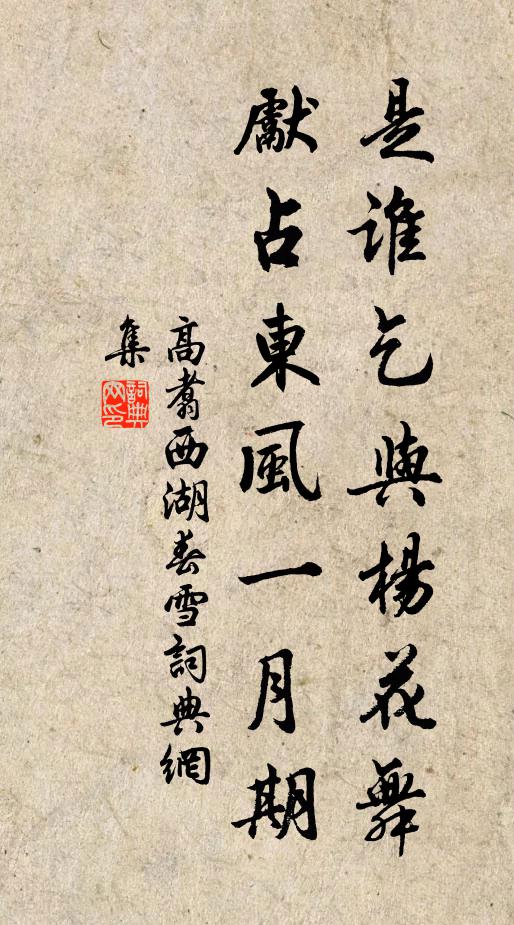 是誰乞與楊花舞
獻占東風一月期
高翥西湖春雪詞典網
集
詞典
网印